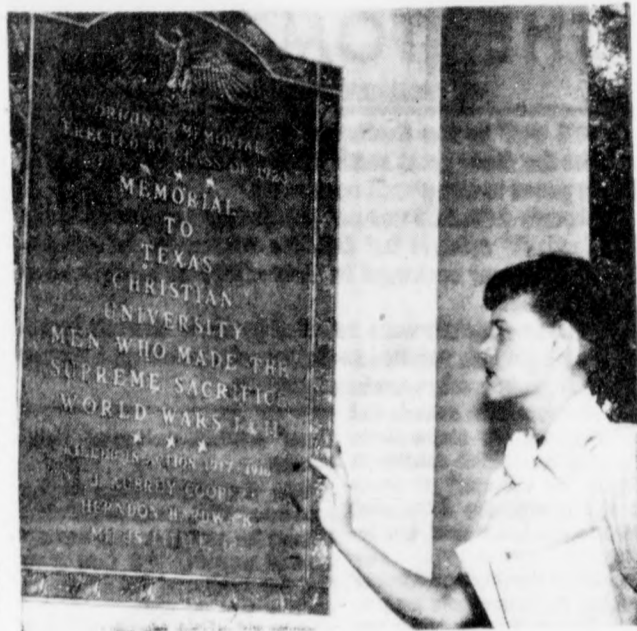 ORIGINAL MEMORIAL
ERECTED BY CLASS OF 1923
MEMORIAL
TO
TEXAS
CHRISTIAN
UNIVERSITY
MEN WHO MADE THE
SUPREME SACRIFICE
WORLD WARS I & II
KILLED IN ACTION 1917-1918
J. AUBREY COOPER
HERNDON HARDWICK